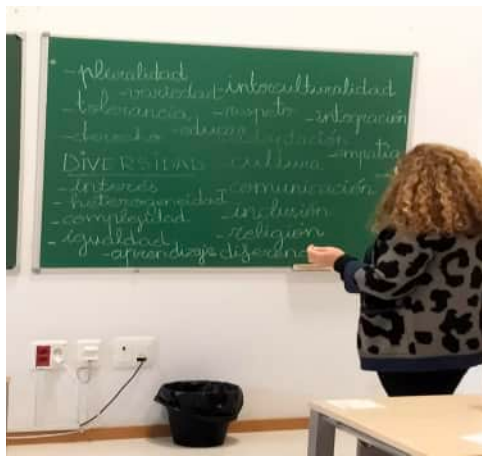 -pluralidad
-variedad -interculturalidad
-tolerancia -respeto -integración
-derecho -educar -adaptación
DIVERSIDAD -cultura -empatia
-interés -comunicación
-heterogeneidad
-complejidad -inclusión
-igualdad -religion
-aprendizaje